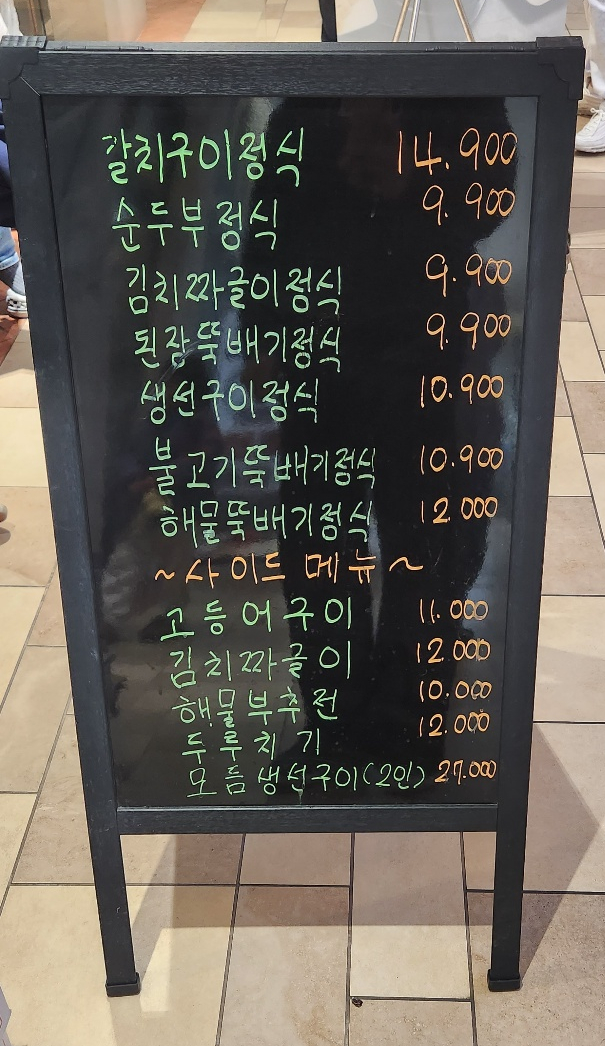 갈치구이정식 14.900
순두부정식 9.900
김치짜글이정식 9.900
된장뚝배기정식 9.900
생선구이정식 10.900
불고기뚝배기정식 10.900
해물뚝배기정식 12.000
~사이드 메뉴~
고등어구이 11.000
김치짜글이 12.000
해물부추전 10.000
두루치기 12.000
모듬생선구이(2인) 27.000